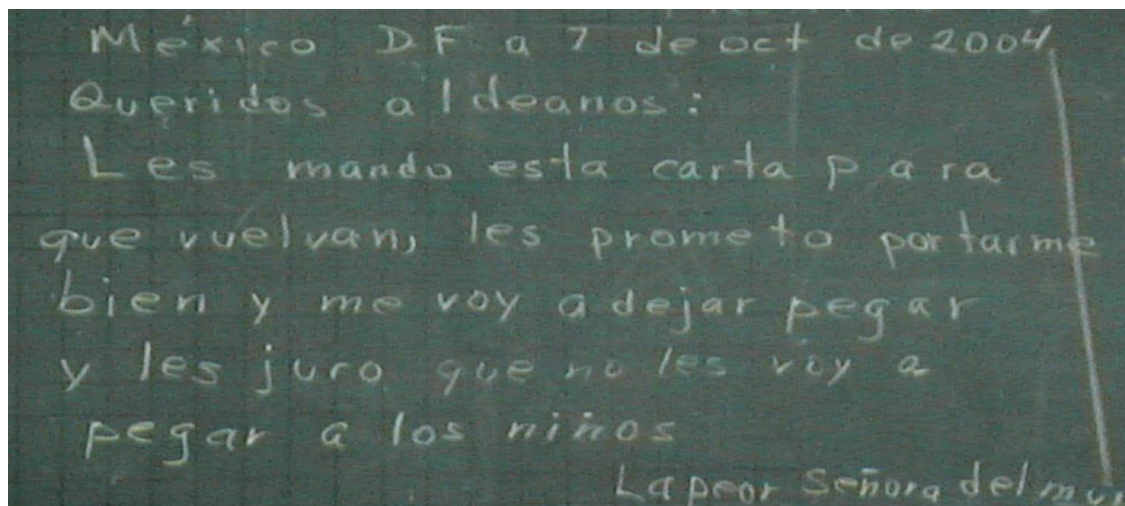 México D.F a 7 de oct de 2004
Queridos aldeanos:
Les mando esta carta para
que vuelvan, les prometo portarme
bien y me voy a dejar pegar
y les juro que no les voy a
pegar a los niños
La peor Señora del